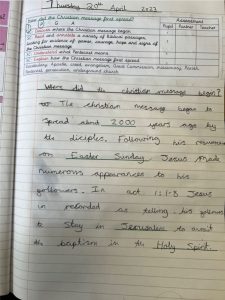 Thursday 20th April 2023
How did the Christian message first spread?
Assessment
Pupil Partner Teacher
where the Christian message began
Read and annotate a variety of biblical passages,
looking for evidence of power, courage, hope and signs of
the Christian message
Understand what Pentecost means
Explain how the Christian message first spread
Vocabulary: Apostle, creed, evangelism, Great Commission, missionary, Parish
Pentecost, persecution, underground church
Where did the christian message began?
The christian message began to
spread about 2000 years ago by
the diciples. Following his
on Easter Sunday. Jesus made
numerous appearances to his
followers. In act 1:1-8 Jesus
is recorded as telling his
to stay in Jerusalem to await
the baptism in the Holy Spirit.